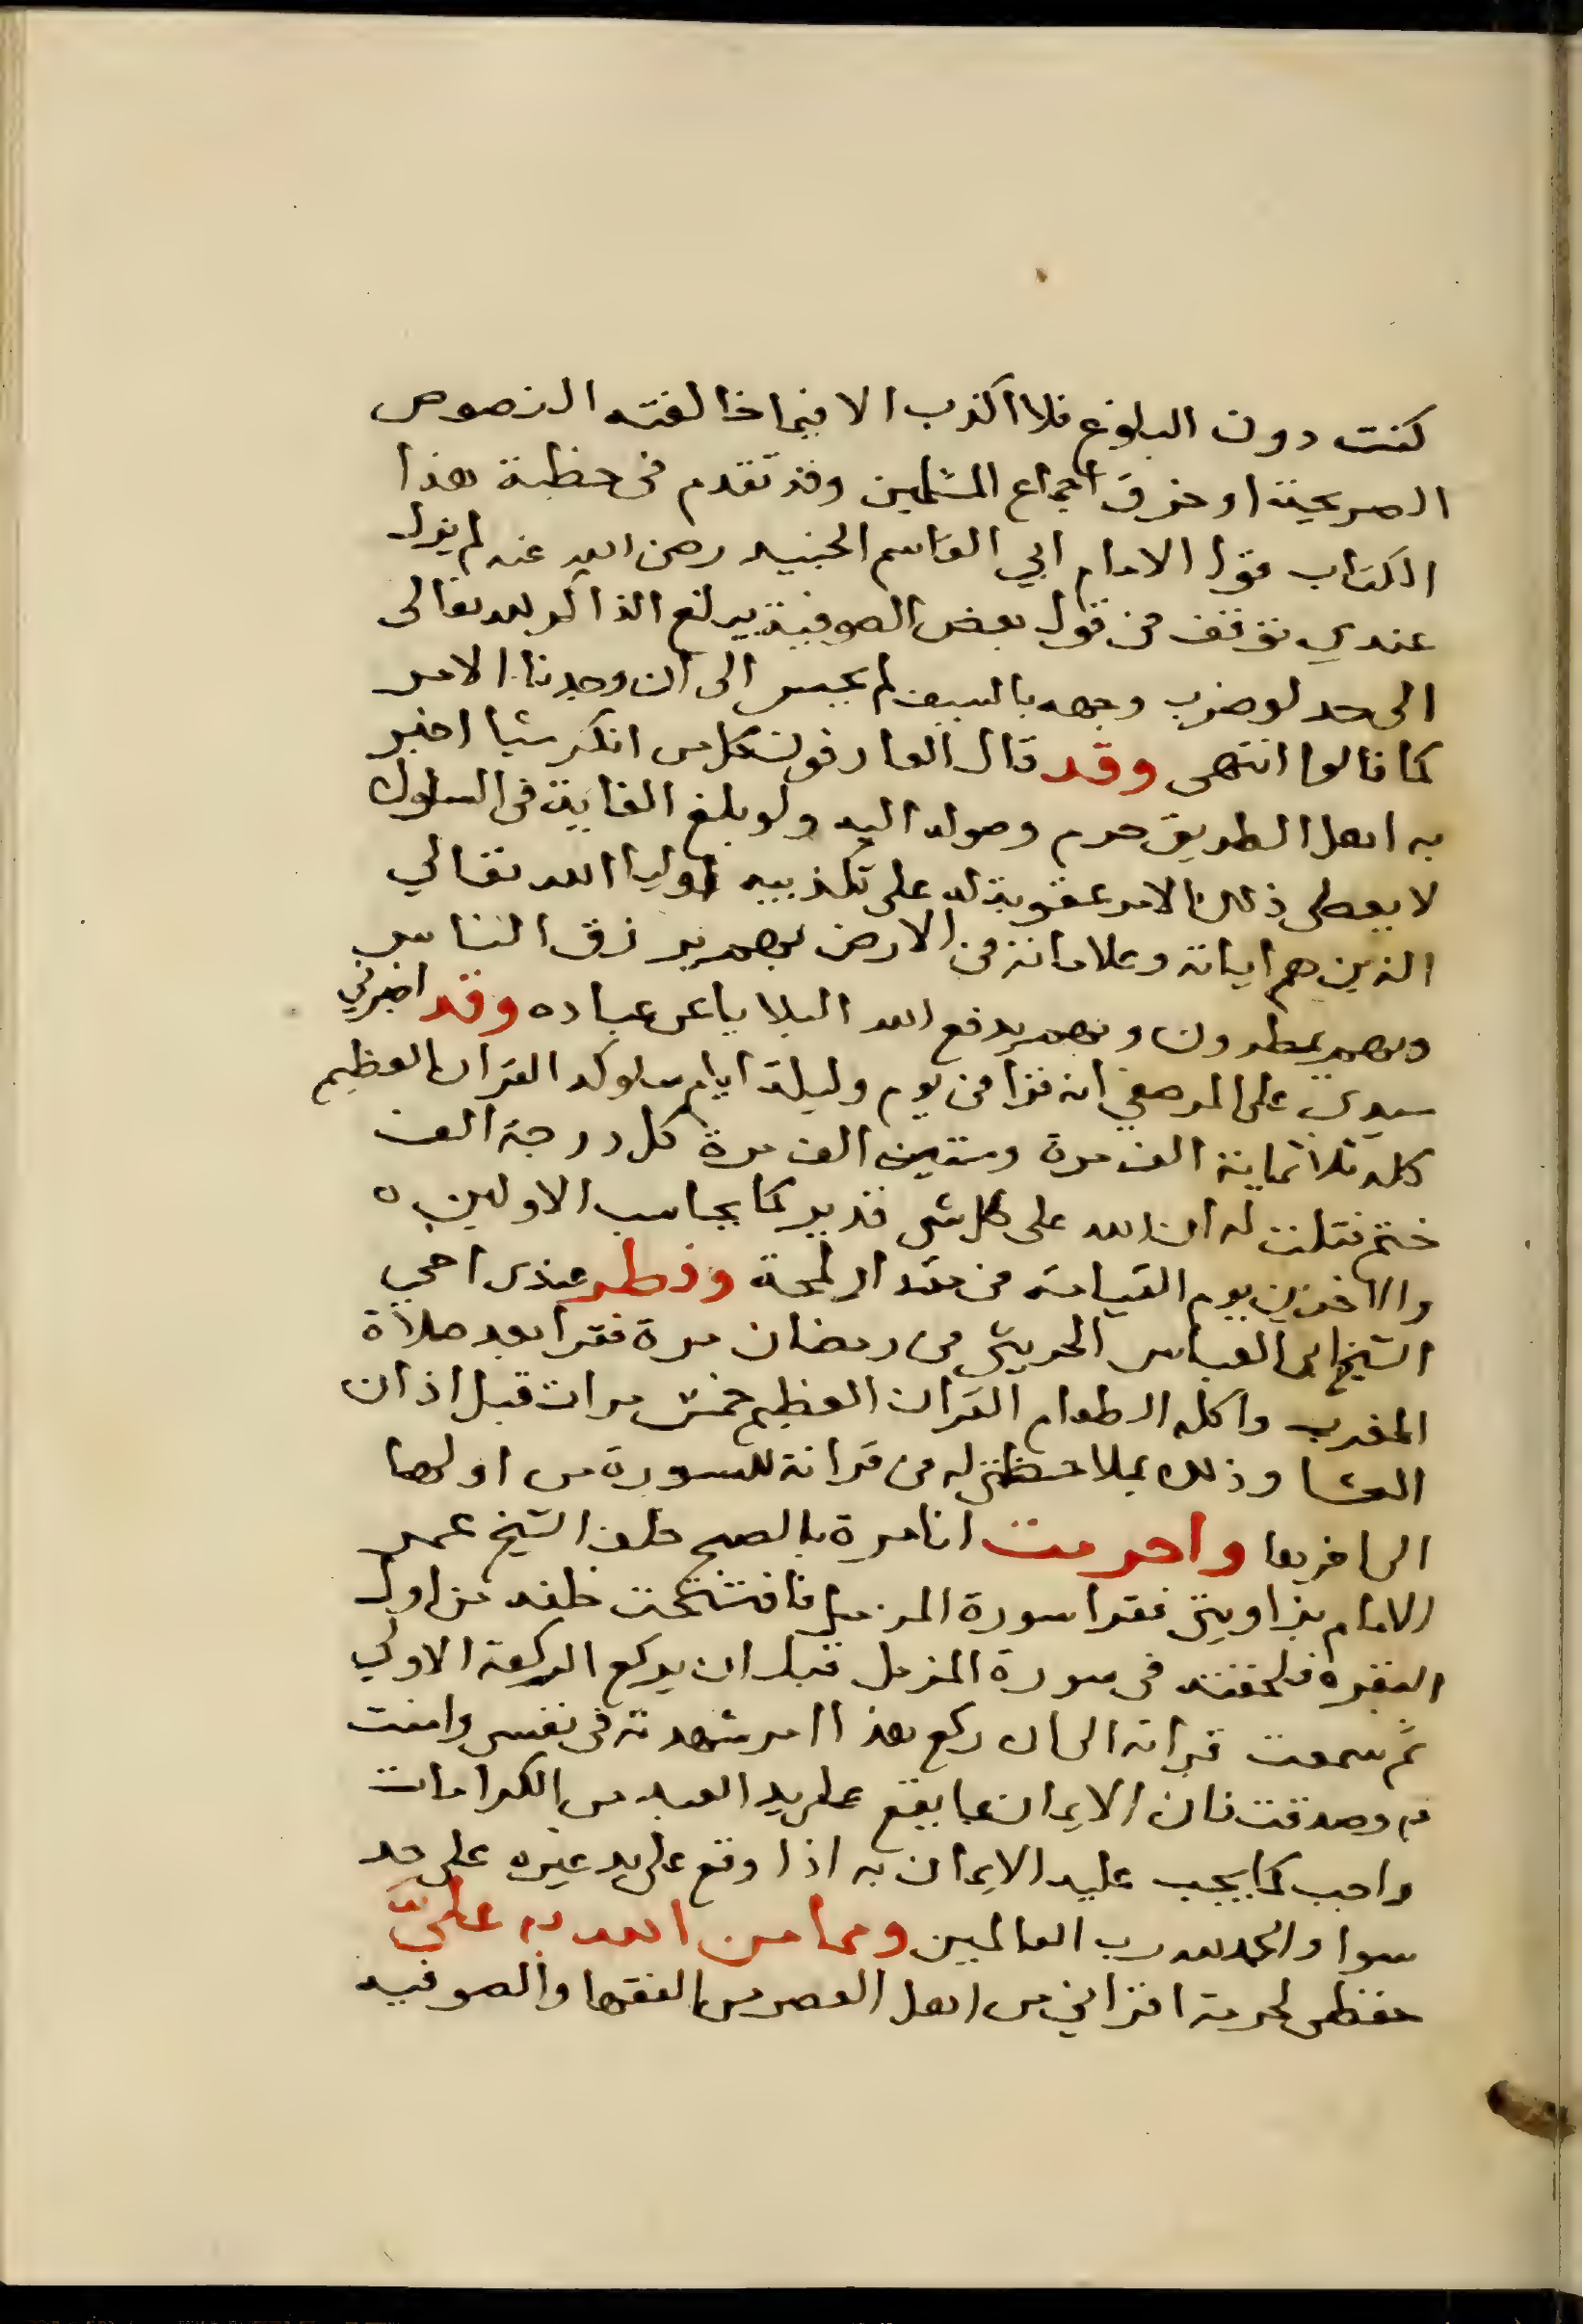 كنت دون البلوغ فلا اكذب الا فيما خالفته النصوص
الصريحة او خرق اجماع المسلمين وقد تقدم في خطبة هذا
الكتاب قول الامام ابي القاسم الجنيد رضي الله عنه لم يزل
عندي توقف في قول بعض الصوفية يبلغ الذاكر لله تعالى
الى حد لو ضرب وجهه بالسيف لم يحس الى ان وجدنا الامر
كما قالوا انتهى وقد قال العارفون كل من انكر شيا اخبر
به اهل الطريق حرم وصوله اليه ولو بلغ الغاية في السلوك
لا يعطى ذلك الامر عقوبة له على تكذبيه اوليا الله تعالي
الذين هم اياته وعلاماته في الارض بهم يرزق الناس
وبهم يمطرون وبهم يدفع الله البلايا عن عباده وقد اخبرني
سيدي على المرصفي انه قرا في يوم وليلة ايام سلوكه القران العظيم
كله ثلاثماية الف مرة وستين الف مرة كل درجة الف
ختم فقلت له ان الله على كل شي قدير كما يحاسب الاولين ه
والاخرين يوم القيامة في مقدار لمحة وفطر عندى اخي
الشيخ ابى العباس الحريثي في رمضان مرة فقرا بعد صلاة
المغرب واكله الطعام القران العظيم خمس مرات قبل اذان
العشا وذلك بملاحظتى له من قرانه للسورة من اولها
الى اخرها واحرمت انا مرة بالصبح خلف الشيخ عمر
الامام بزاويتي فقرا سورة المزمل فافتتحت خلفه من اول
البقرة فلحقته في سورة المزمل قبل ان يركع الركعة الاولي
ثم سمعت قرانه الى ان ركع هذا امر شهدته في نفسي وامنت
به وصدقت فان الايمان بما يقع على يد العبد من الكرامات
واجب كما يجب عليه الايمان به اذا وقع على يد غيره على حد
سوا والحمد لله رب العالمين ومما من الله به عليَّ
حفظى لحرمة اقراني من اهل العصر من الفقها والصوفيه